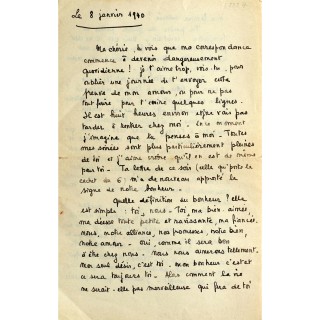 Le 8 janvier 1940
Ma chérie, tu vois que ma correspondance
commence à devenir dangereusement
quotidienne ! je t'aime trop, vois-tu, pour
oublier une journée de t'envoyer cette
preuve de mon amour, ou pour ne pas
tout faire pour t'écrire quelques lignes.
Il est huit heures environ et je ne vais pas
tarder à rentrer chez moi. En ce moment
j'imagine que tu penses à moi. Toutes
mes soirées sont plus particulièrement pleines
de toi et j'aime croire qu'il en est de même
par toi. Ta lettre de ce soir (elle qui porte le
cachet du 6) m'a de nouveau apporté le
signe de notre bonheur.
Quelle définition du bonheur ? elle
est simple : toi, nous. Toi, ma bien aimée,
ma déesse toute petite et ravissante, ma fiancée.
nous, notre alliance, nos promesses, notre bien,
notre amour. Oui, comme il sera bon
d'être chez nous. Nous nous aimerons tellement.
Mon seul désir, c'est toi. Mon bonheur c'est et
ce sera toujours toi. Alors comment la vie
ne serait-elle pas merveilleuse qui fera de toi